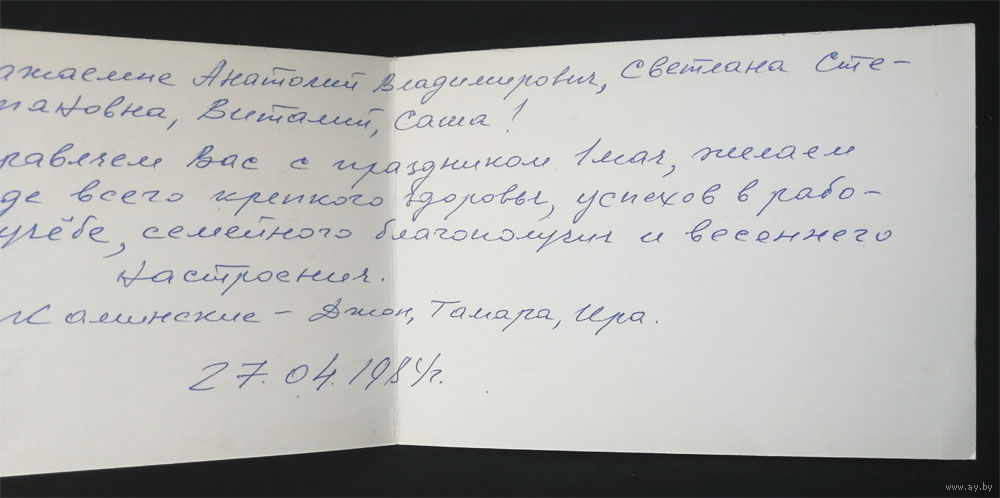 ажаемые Анатолий Владимирович, Светлана Сте-
пановна, Виталий, Саша!
равляем Вас с праздником 1 мая, желаем
де всего крепкого здоровья, успехов в рабо-
учёбе, семейного благополучия и весеннего
настроения.
Калинские - Джон, Тамара, Ира.
27.04.1984г.
www.ay.by